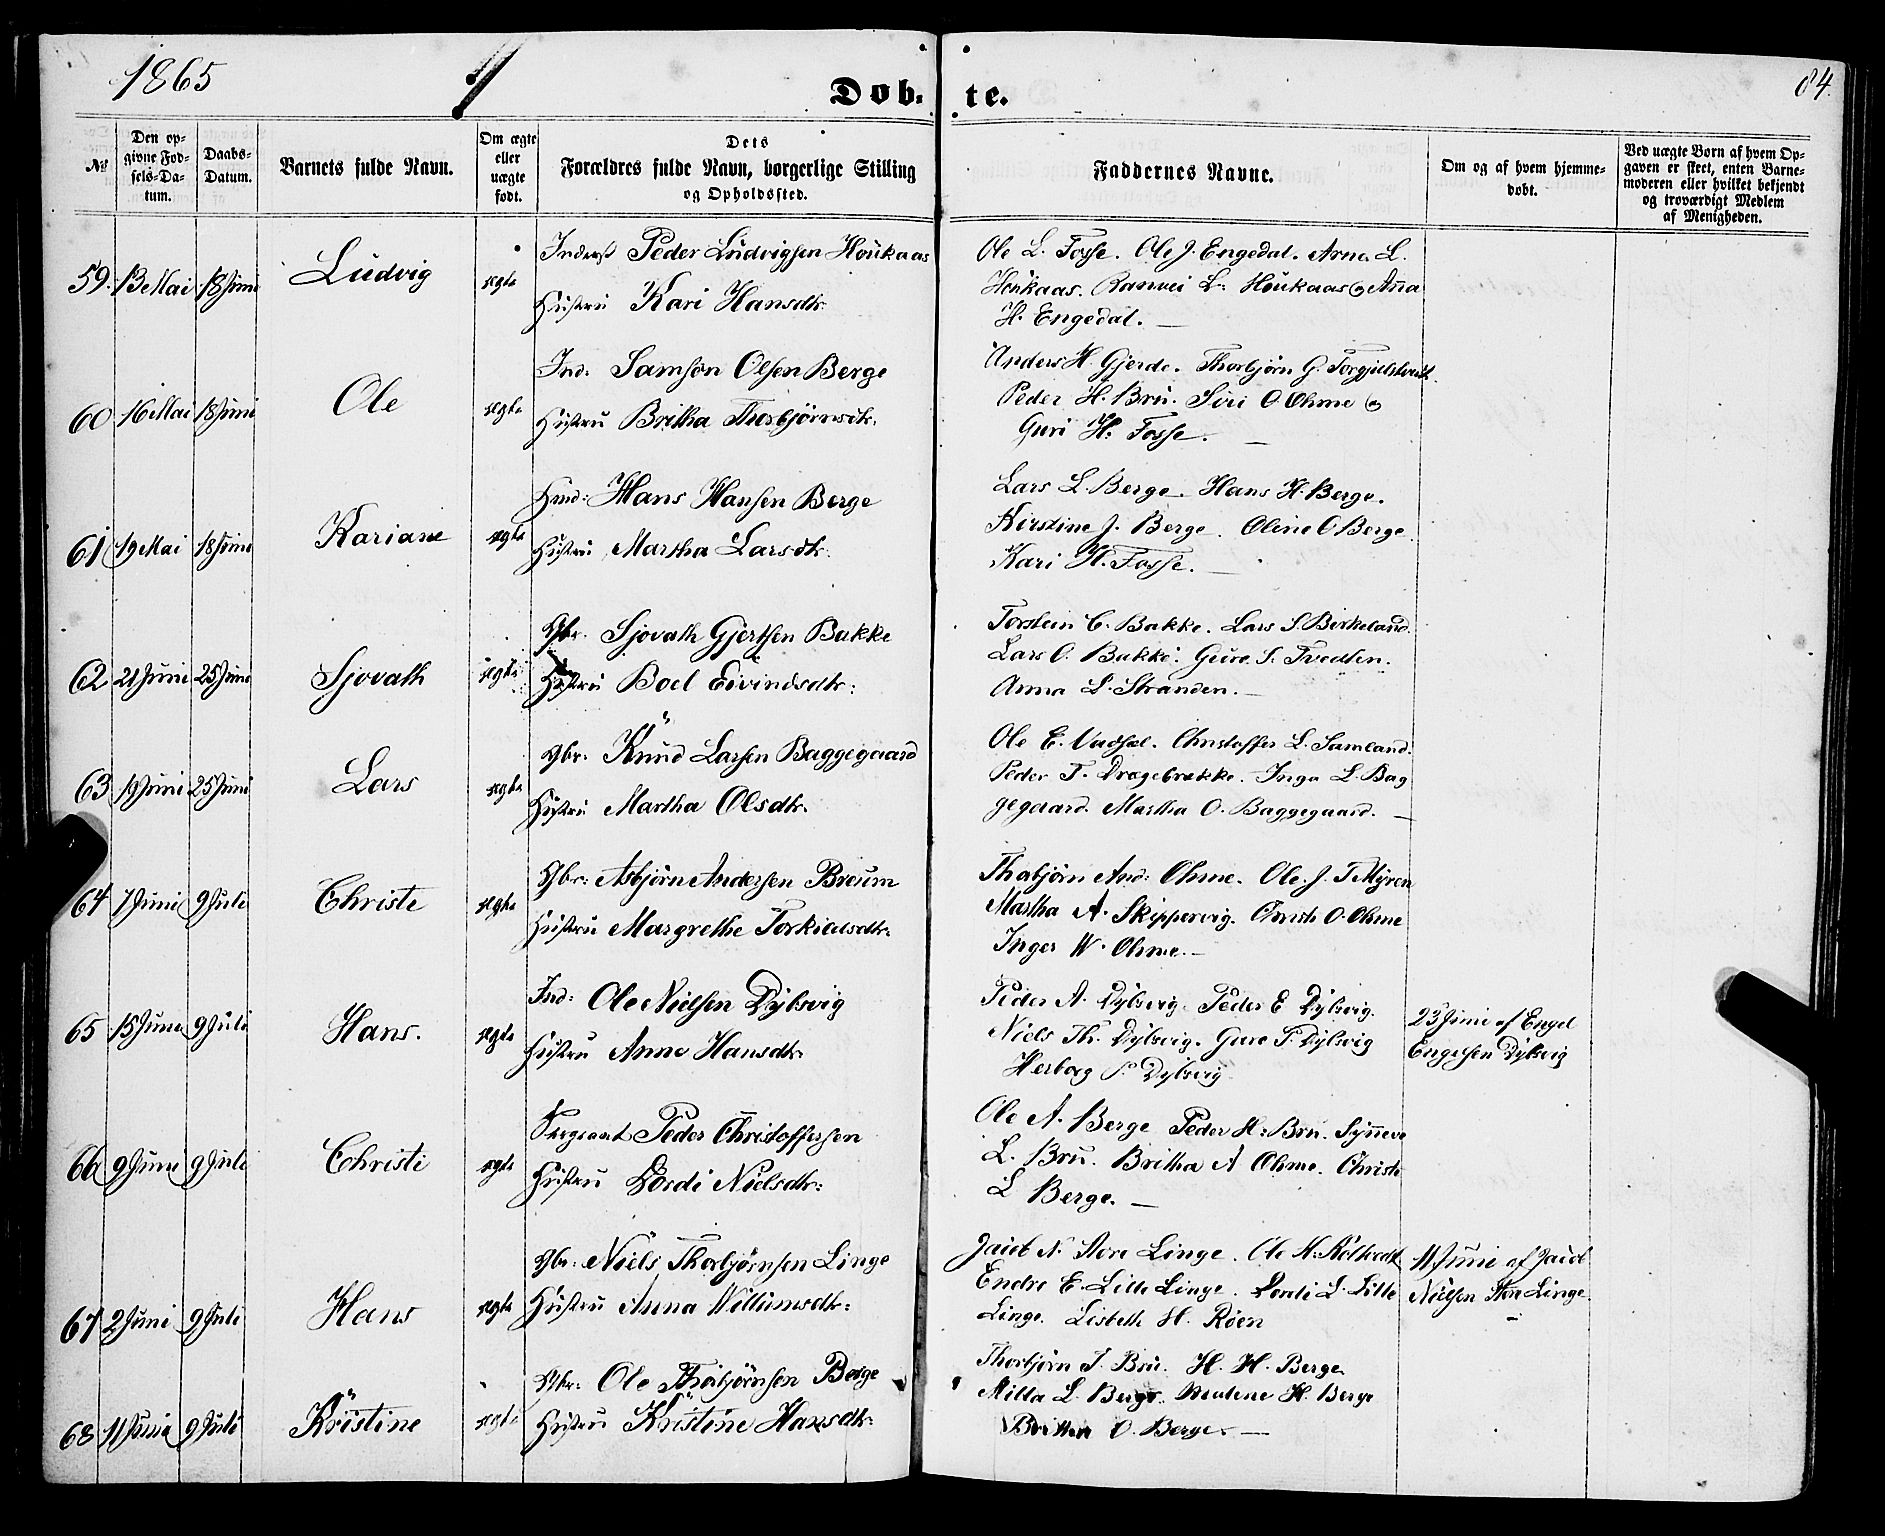 1865
Døb-te.
84.
No
Den op-
givne Fød-
sels-Da-
tum.
Daabs-
Datum.
Barnets fulde Navn.
Om ægte
eller
uægte
født.
Dets
Forældres fulde Navn, borgerlige Stilling
og Opholdssted.
Faddernes Navne.
Om og af hvem hjemme-
døbt.
Ved uægte Børn af hvem Op-
gaven er skeet, enten Barne-
moderen eller hvilket bekjendt
og troværdigt Medlem
af Menigheden.
59. 13 Mai 18 Juni Ludvig ægte
Inderst Peder Ludvigsen Houkaas
Hustru Kari Hansdtr.
Ole L. Fosse. Ole J. Engedal. Arne L.
Houkaas. Ranvei L. Houkaas og Anna
H. Engedal. —
60 16 Mai 18 Juni Ole ægte
Ind: Samson Olsen Berge
Hustru Britha Thorbjørnsdtr.
Anders H Gjerde. Thorbjørn G.
Peder H. Bru. Siri O Ohme og
Guri H. Fosse. —
61 19 Mai 18 Juni Kariane ægte
Hans Hansen Berge
Hustru Martha Larsdtr.
Lars L. Berge. Hans H. Berge.
Kirstine J. Berge. Oline O Berge.
Kari H. Fosse. —
62 21 Juni 25 Juni Sjovath ægte
Gbr. Sjovath Gjertsen Bakke
Hustru Boel Eivindsdtr:
Torstein C. Bakke. Lars S. Birkeland.
Lars O. Bakke. Guro S. Tvedten.
Anna L. Stranden. —
63 19 Juni 25 Juni Lars ægte
Gbr. Knud Larsen Baggegaard
Hustru Martha Olsdtr.
Ole E. Vadsel. Christoffer L. Samland.
Peder T. Dragebrække. Inga L. Bag
gegaard. Martha O. Baggegaard. —
64 7 Juni 9 Juli Christe ægte
Gbr: Asbjørn Andersen Breum
Hustru Margrethe Torkildsdtr.
Thorbjørn And: Ohme. Ole J. T Myren
Martha A. Skippervig. Christe O. Ohme
Inger W. Ohme. —
65 15 Juni 9 Juli Hans. ægte
Ind: Ole Nielsen Dybsvig
Hustru Anne Hansdtr.
Peder A. Dybsvig. Peder E Dybsvig.
Niels Th. Dybsvig. Guro P. Dybsvig
Herborg P. Dybsvig
23 Juni af Engel
Engelsen Dybsvig
66 9 Juni 9 Juli Christi ægte
Sergeant Peder Christoffersen
Hustru Dordi Nielsdtr:
Ole A. Berge Peder H. Bru. Synneve
L. Bru. Britha A Ohme. Christe
L Berge. —
67 2 Juni 9 Juli Hans ægte
Gbr: Niels Thorbjørnsen Linge
Hustru Anna Willumsdtr:
Jaiet N. Store Linge. Ole N.
Endre E. Lille Linge. Dordi L. Lille
Linge. Lisbeth H. Røen
11 Juni af Jaiet
Nielsen Store Linge.
68 11 Juni 9 Juli Kristine ægte
Gbr: Ole Thorbjørnsen Berge
Hustru Kristine Hansdtr.
Thorbjørn T. Bru. H. H. Berge
Milla L. Berge. H. Berge
Britha O. Berge. —